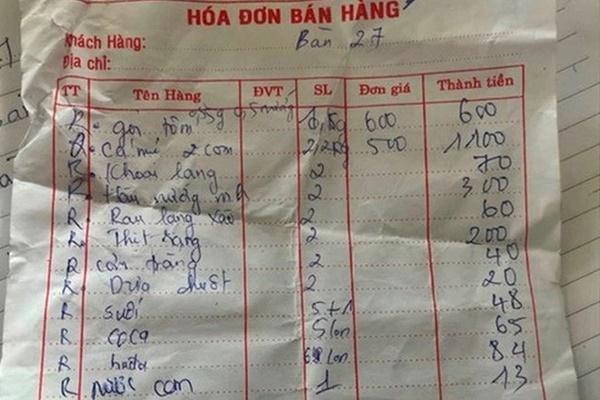 HÓA ĐƠN BÁN HÀNG
Khách Hàng: Bàn 27
Địa chỉ:
TT Tên Hàng ĐVT SL Đơn giá Thành tiền
R. gỏi tôm 0,5g 0,5 nướng 600 600
R. Cá mú 2 con 2,2kg 500 1100
R. Khoai lang 2 70
R. Hàu nướng mh 2 300
R. Rau lang xào 2 60
R. Thịt rang 2 200
R cơm trắng 2 40
R. Dưa chuột 2 20
R suối 5+1 48
R coca 5 lon 65
R lon 84
R nước cam 1 13